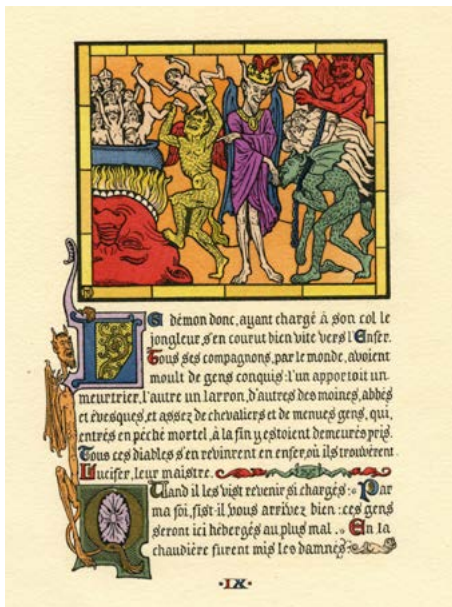 LE démon donc, ayant chargé à son col le
jongleur, s'en courut bien vite vers l'Enfer.
Tous ses compagnons, par le monde, avoient
moult de gens conquis: l'un apportoit un
meurtrier, l'autre un larron, d'autres des moines, abbés
et évesques, et assez de chevaliers et de menues gens, qui,
entrés en péché mortel, à la fin y estoient demeurés pris.
Tous ces diables s'en revinrent en enfer, où ils trouvèrent
Lucifer, leur maistre.
QUand il les vist revenir si chargés: « Par
ma foi, fist-il, vous arrivez bien: ces gens
seront ici hébergés au plus mal. » En la
chaudière furent mis les damnés:
·IX·